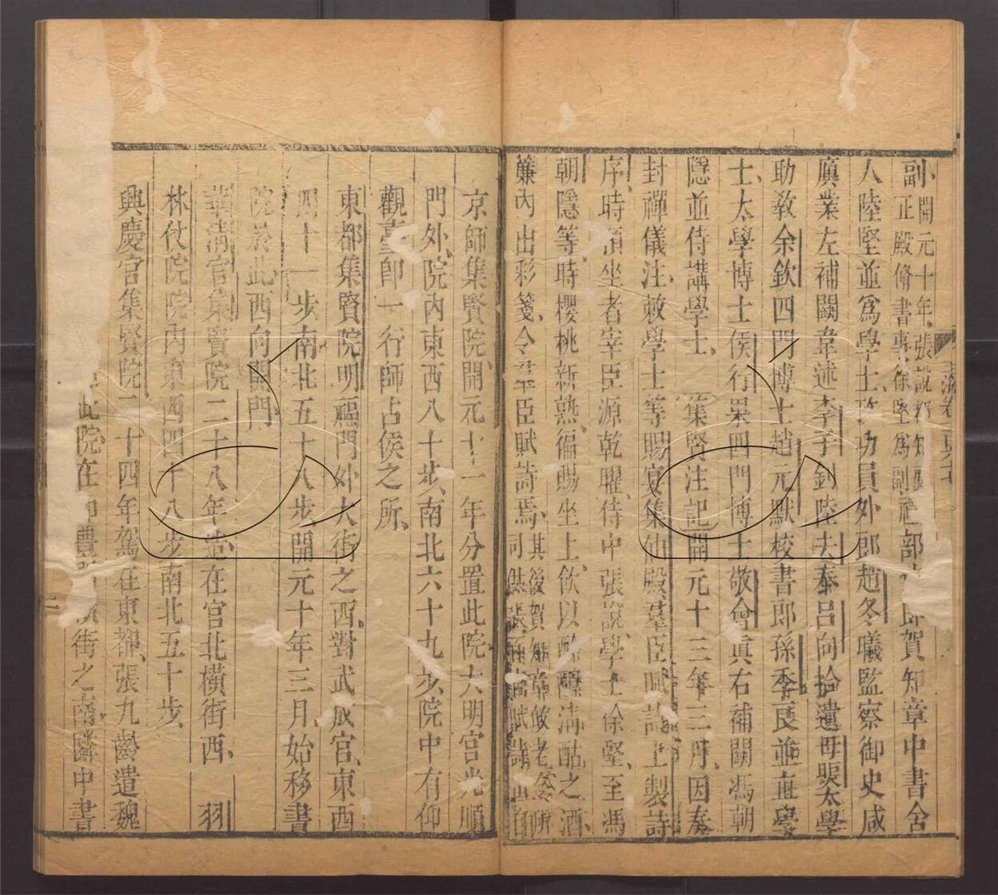 副開元十年張說都知麗
正殿脩書事徐堅爲副禮部侍郎賀知章中書舍
人陸堅並爲學士考功員外郎趙冬曦監察御史咸
廙業左補闕韋述李子釗陸去泰呂向拾遺毋煚太學
助教余欽四門博士趙元默校書郎孫季良並直學
士太學博士侯行果四門博士敬會眞右補闕馮朝
隱並侍講學士 集賢注記開元十三年三月因奏
封禪儀注敕學士等賜宴集仙殿羣臣賦詩上製詩
序時預坐者宰臣源乾曜侍中張說學士徐堅至馮
朝隱等時櫻桃新熟徧賜坐上飲以酴醿淸酤之酒
簾內出彩箋令羣臣賦詩焉其後賀知章
京師集賢院開元十一年分置此院大明宮光順
門外院內東西八十步南北六十九步院中有仰
觀臺卽一行師占侯之所
東都集賢院明福門外大街之西對武成宮東西
四十一步南北五十八步開元十年三月始移書
院於此西向開門
華淸宮集賢院二十八年造在宮北橫街西 羽
林仗院院內東西四十八步南北五十步
興慶宮集賢院二十四年駕在東都張九齡遣魏
此院在和豐 橫街之南 中書